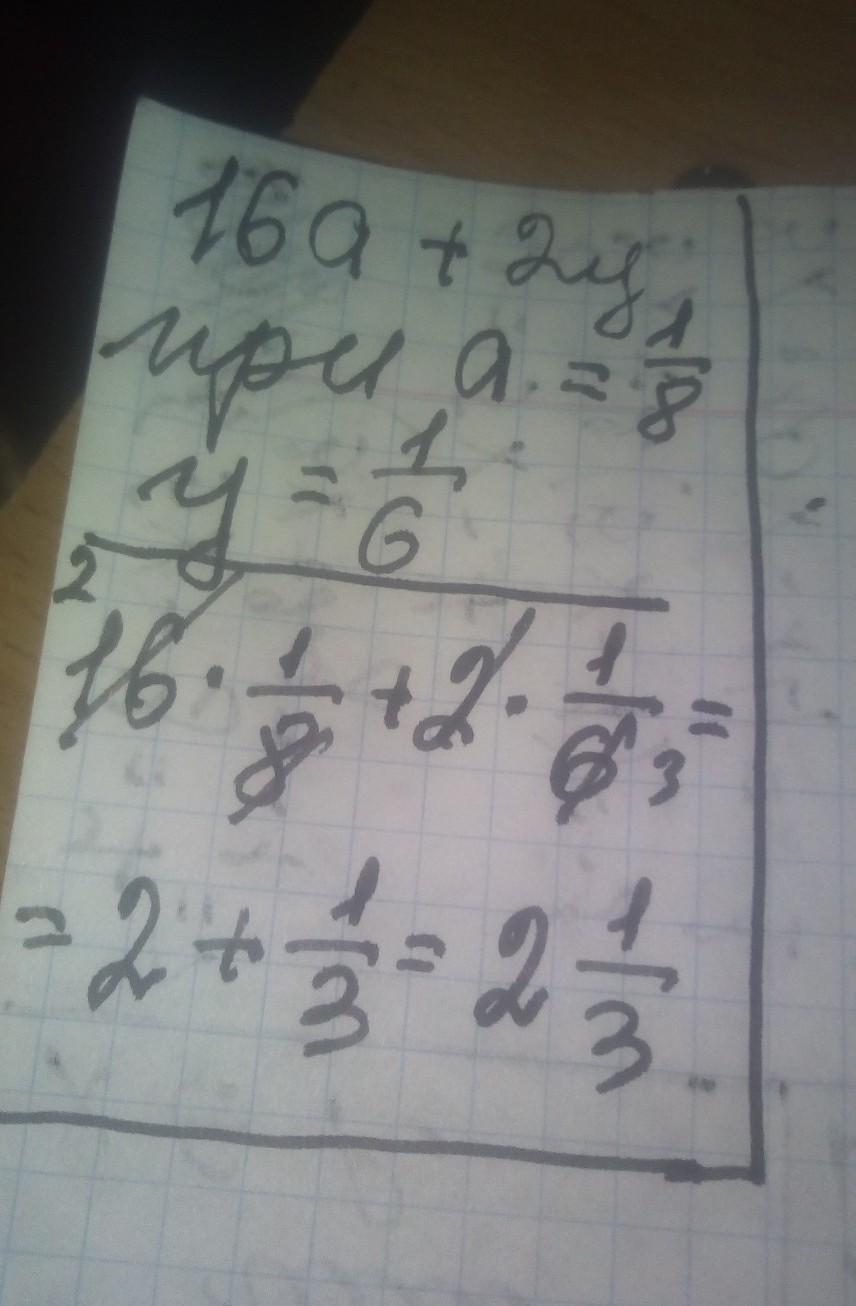 16a + 2y
при a = 1/8
y = 1/6
2
16 · 1/8 + 2 · 1/6 3 =
= 2 + 1/3 = 2 1/3